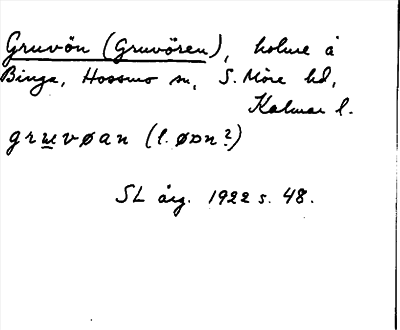 Gruvön (Gruvören), holme å
Binga, Hossmo sn, S. Möre hd,
Kalmar l.
gruvøan (l. øɔn?)
SL årg. 1922 s. 48.